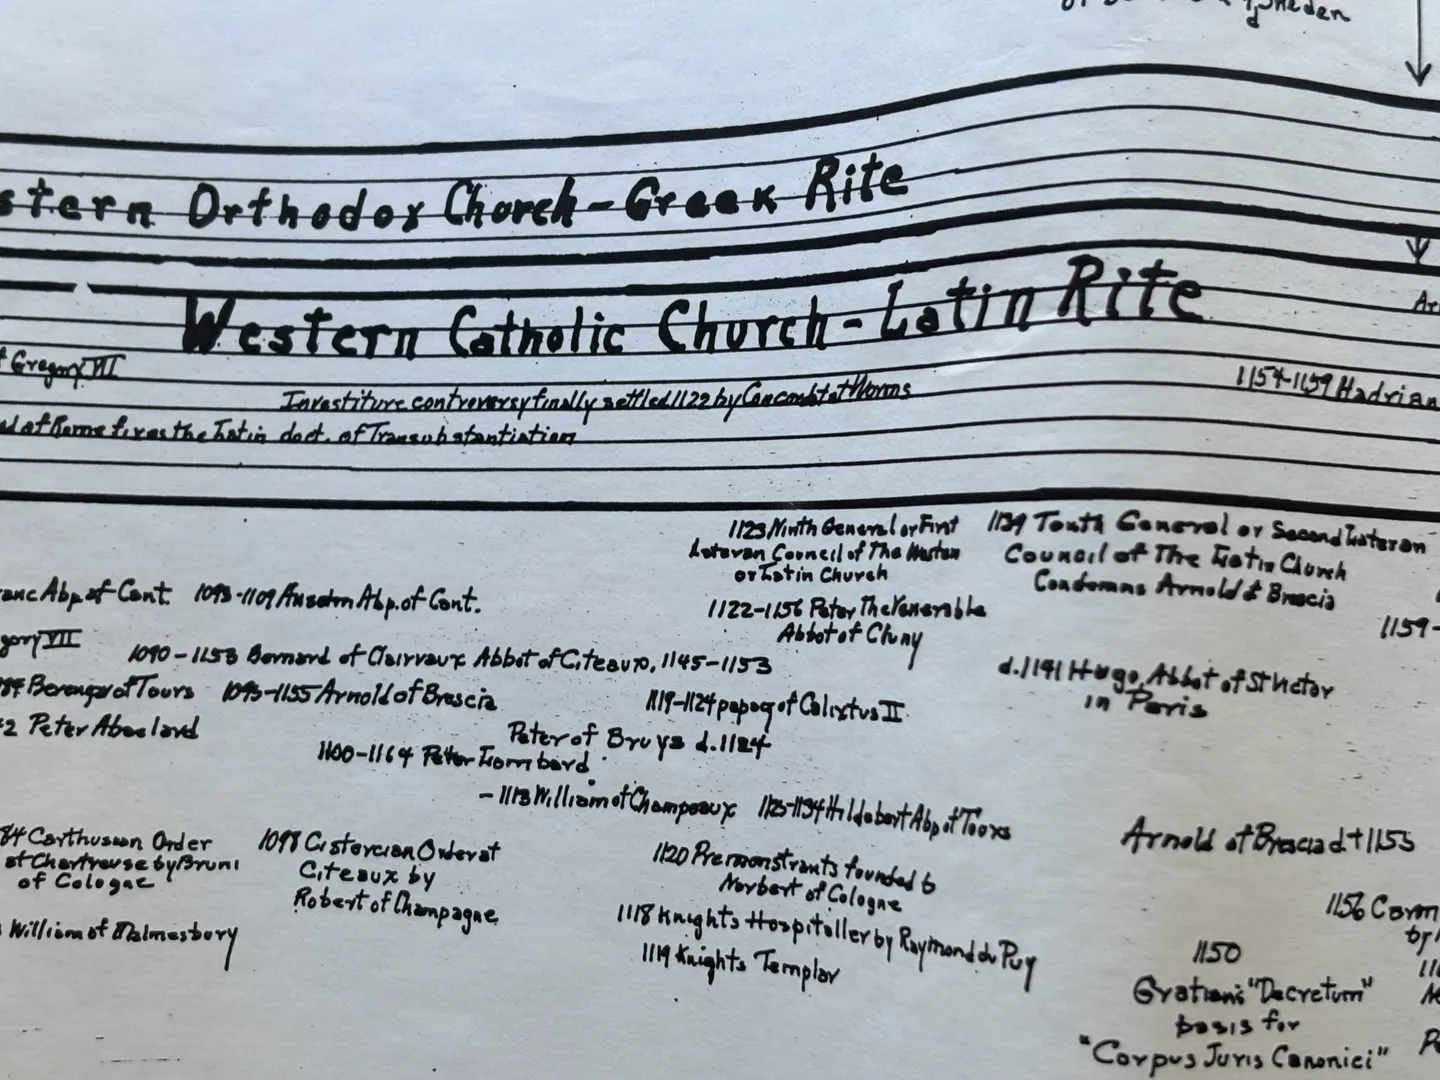 Sweden
stern Orthodox Church - Greek Rite
Western Catholic Church - Latin Rite
Gregory VII
1154-1159 Hadrian
Investiture controversy finally settled 1122 by Concordat of Worms
of Rome fixes the Latin doct. of Transubstantiation
1123 Ninth General or First
Lateran Council of The Western
or Latin Church
1139 Tenth General or Second Lateran
Council of The Latin Church
Condemns Arnold of Brescia
anc Abp. of Cant.
1093-1109 Anselm Abp. of Cant.
1122-1156 Peter The Venerable
Abbot of Cluny
1159-
gory VII
1090-1153 Bernard of Clairvaux Abbot of Citeaux, 1145-1153
d. 1141 Hugo, Abbot of St Victor
in Paris
Berengar of Tours
1095-1155 Arnold of Brescia
1119-1124 papacy of Calixtus II
2 Peter Abaelard
Peter of Bruys d. 1124
1100-1164 Peter Lombard
-1113 William of Champeaux
1125-1134 Hildebert Abp of Tours
Arnold of Brescia d † 1155
84 Carthusian Order
at Chartreuse by Bruni
of Cologne
1098 Cistercian Order at
Citeaux by
Robert of Champagne
1120 Premonstrants founded b
Norbert of Cologne
1118 Knights Hospitaller by Raymond du Puy
1119 Knights Templar
William of Malmesbury
1156 Carm
by
1150
Gratian's "Decretum"
basis for
"Corpus Juris Canonici"